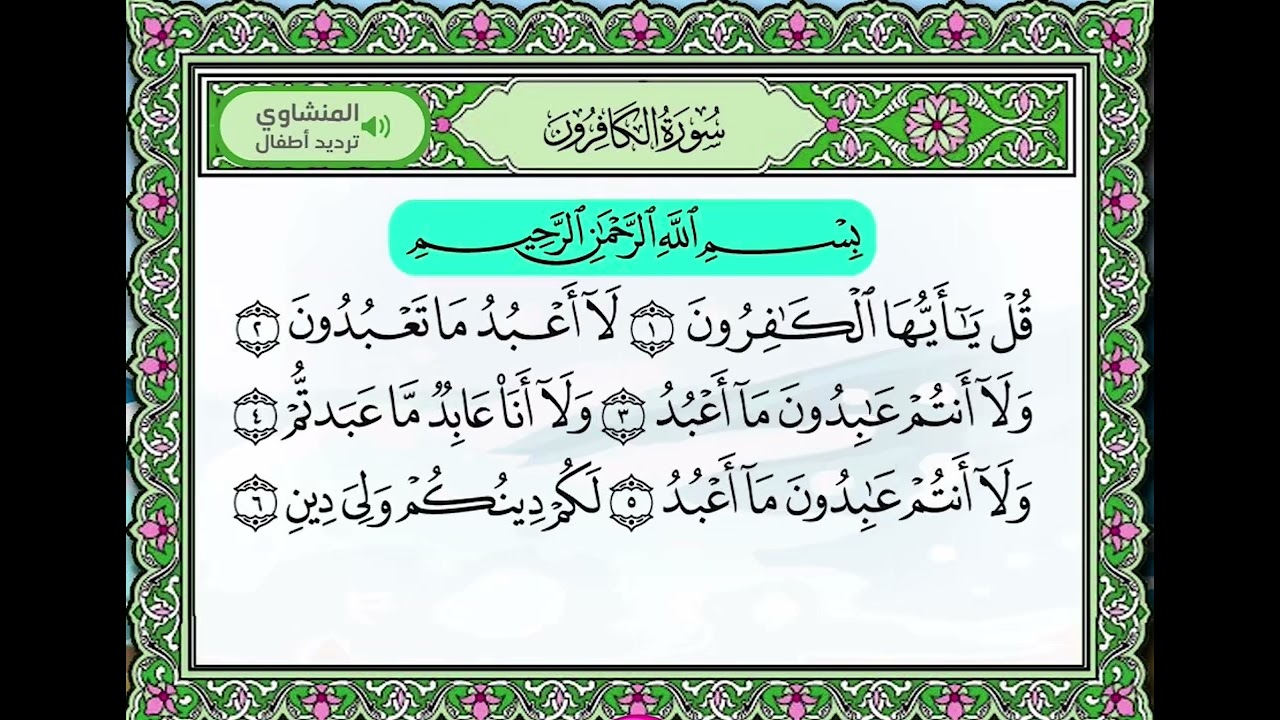 سُورَةُ الكَافِرُونَ
المنشاوي
ترديد أطفال
بِسْمِ ٱللَّهِ ٱلرَّحْمَٰنِ ٱلرَّحِيمِ
قُلْ يَـٰٓأَيُّهَا ٱلْكَـٰفِرُونَ ١ لَآ أَعْبُدُ مَا تَعْبُدُونَ ٢
وَلَآ أَنتُمْ عَـٰبِدُونَ مَآ أَعْبُدُ ٣ وَلَآ أَنَا۠ عَابِدٌ مَّا عَبَدتُّمْ ٤
وَلَآ أَنتُمْ عَـٰبِدُونَ مَآ أَعْبُدُ ٥ لَكُمْ دِينُكُمْ وَلِىَ دِينِ ٦